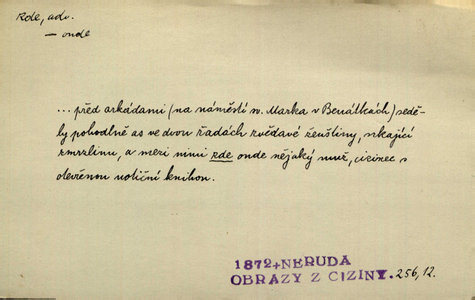 zde, adv.
— onde
... před arkádami (na náměstí sv. Marka v Benátkách) sedě-
ly pohodlně as ve dvou řadách zvědavé ženštiny, srkající
zmrzlinu, a mezi nimi zde onde nějaký muž, cizinec s
otevřenou notiční knihou.
1872+NERUDA
OBRAZY Z CIZINY. 256,12.